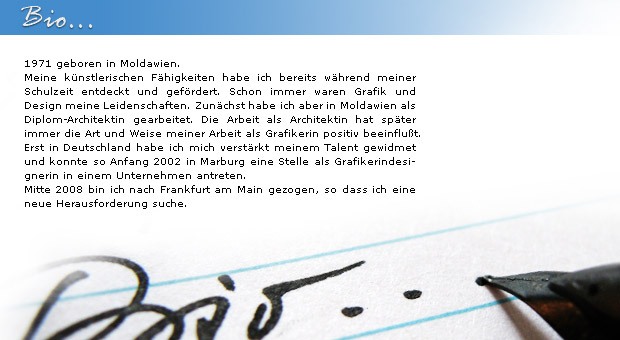 Bio...
1971 geboren in Moldawien.
Meine künstlerischen Fähigkeiten habe ich bereits während meiner
Schulzeit entdeckt und gefördert. Schon immer waren Grafik und
Design meine Leidenschaften. Zunächst habe ich aber in Moldawien als
Diplom-Architektin gearbeitet. Die Arbeit als Architektin hat später
immer die Art und Weise meiner Arbeit als Grafikerin positiv beeinflußt.
Erst in Deutschland habe ich mich verstärkt meinem Talent gewidmet
und konnte so Anfang 2002 in Marburg eine Stelle als Grafikerindesi-
gnerin in einem Unternehmen antreten.
Mitte 2008 bin ich nach Frankfurt am Main gezogen, so dass ich eine
neue Herausforderung suche.
Bio...